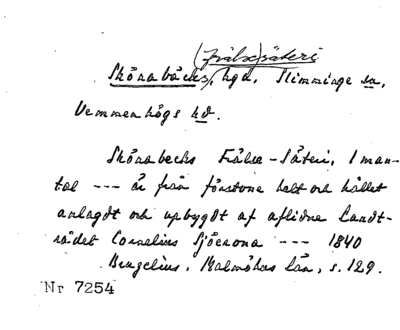 (frälse)säteri
Skönabäck, hgd, Slimminge sn,
Vemmenhögs hd.
Skönabecks Frälse-Säteri, 1 man-
tal --- är från förstone helt och hållet
anlagdt och upbygdt af aflidne Landt-
rådet Cornelius Sjöcrona --- 1840
Bexelius, Malmöhus län, s. 129.
Nr 7254